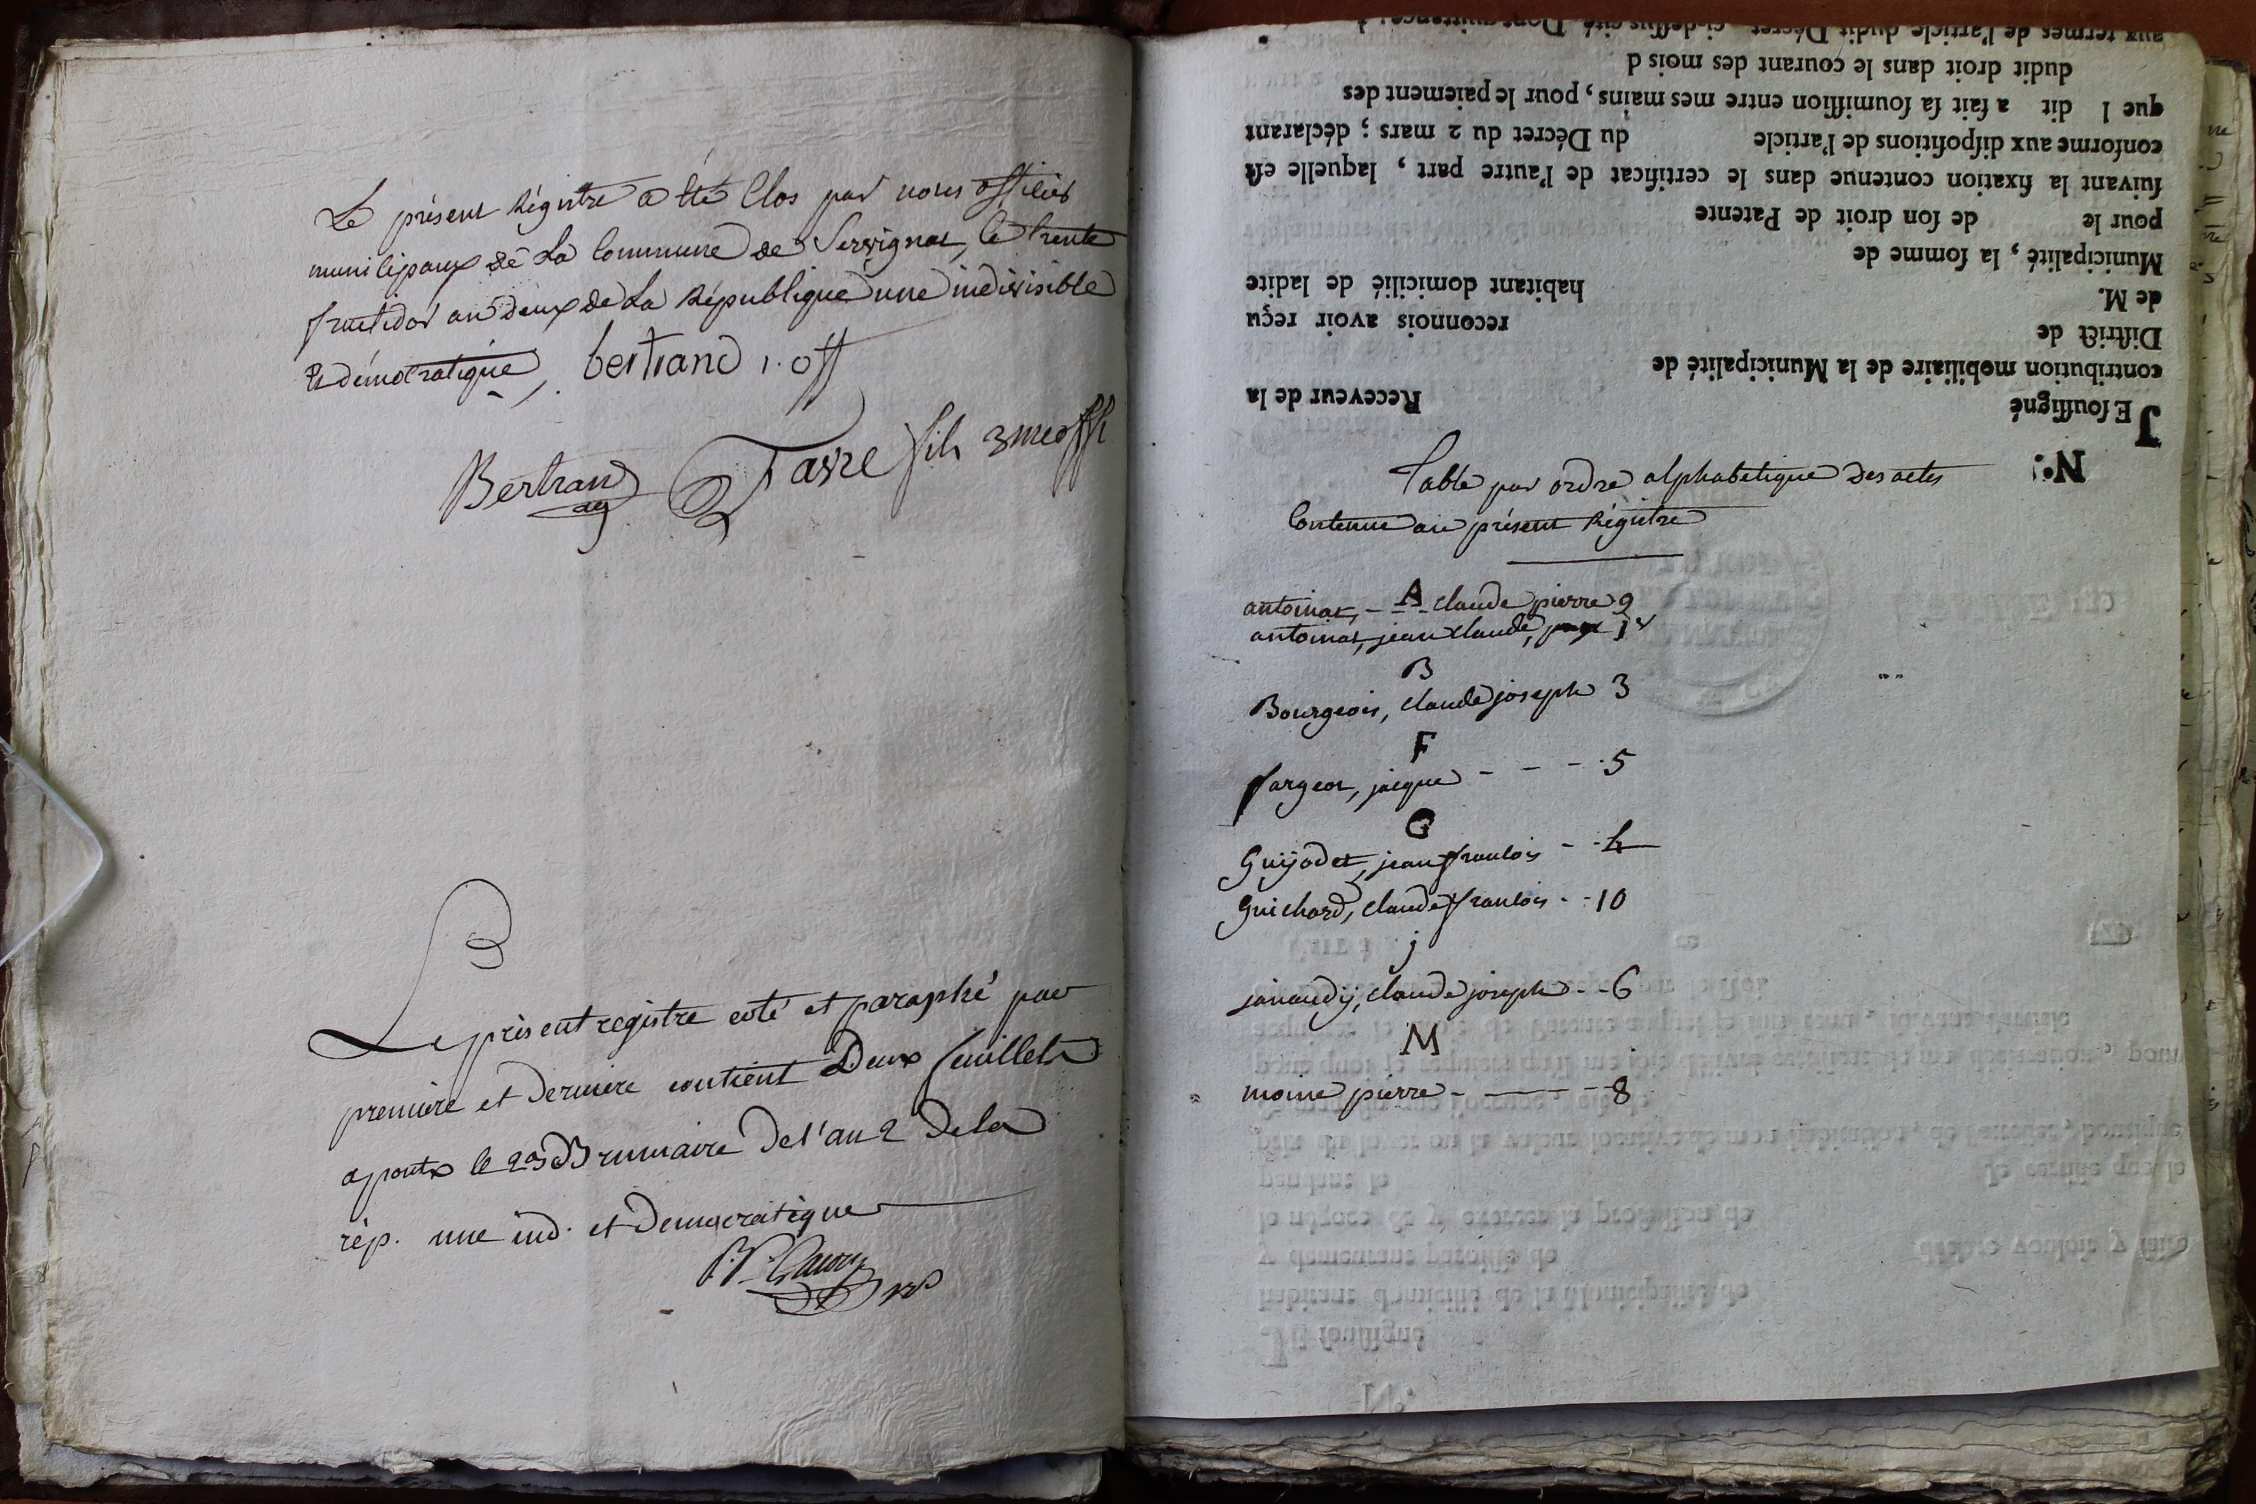 Le présent Régistre a été Clos par nous officiés
municipaux de La Commune de Servignat, le trente
fructidor an deux de La République une indivisible
& démocratique, bertrand 1. off
Bertrand
ag
Favre fils 3me offi
Le présent registre coté et paraphé par
premiere et derniere contient Deux feuillets
a pontx le 29 Brumaire De l'an 2 De la
rép. une ind. et Democratique
aux termes de l'article dudit Décret ci-deſſus cité. Dont quittance;
dudit droit dans le courant des mois d
que l dit a fait ſa ſoumiſſion entre mes mains, pour le paiement des
conforme aux diſpoſitions de l'article du Décret du 2 mars; déclarant
ſuivant la fixation contenue dans le certificat de l'autre part, laquelle eſt
pour le de ſon droit de Patente
Municipalité, la ſomme de
de M. habitant domicilié de ladite
Diſtrict de reconnois avoir reçu
contribution mobiliaire de la Municipalité de
JE ſouſſigné Receveur de la
N°.
Table par ordre alphabetique Des actes
Contenue au présent Régistre
A
antoinat, - - - claude pierre 9
antoinat, jean claude,
B
Bourgeois, claude joseph 3
F
fargeot, jacque - - - 5
G
Guyodet, jean francois - - 4
Guichard, claude francois - - 10
j
janaudy, claude joseph - - 6
M
moine pierre - — - - 8